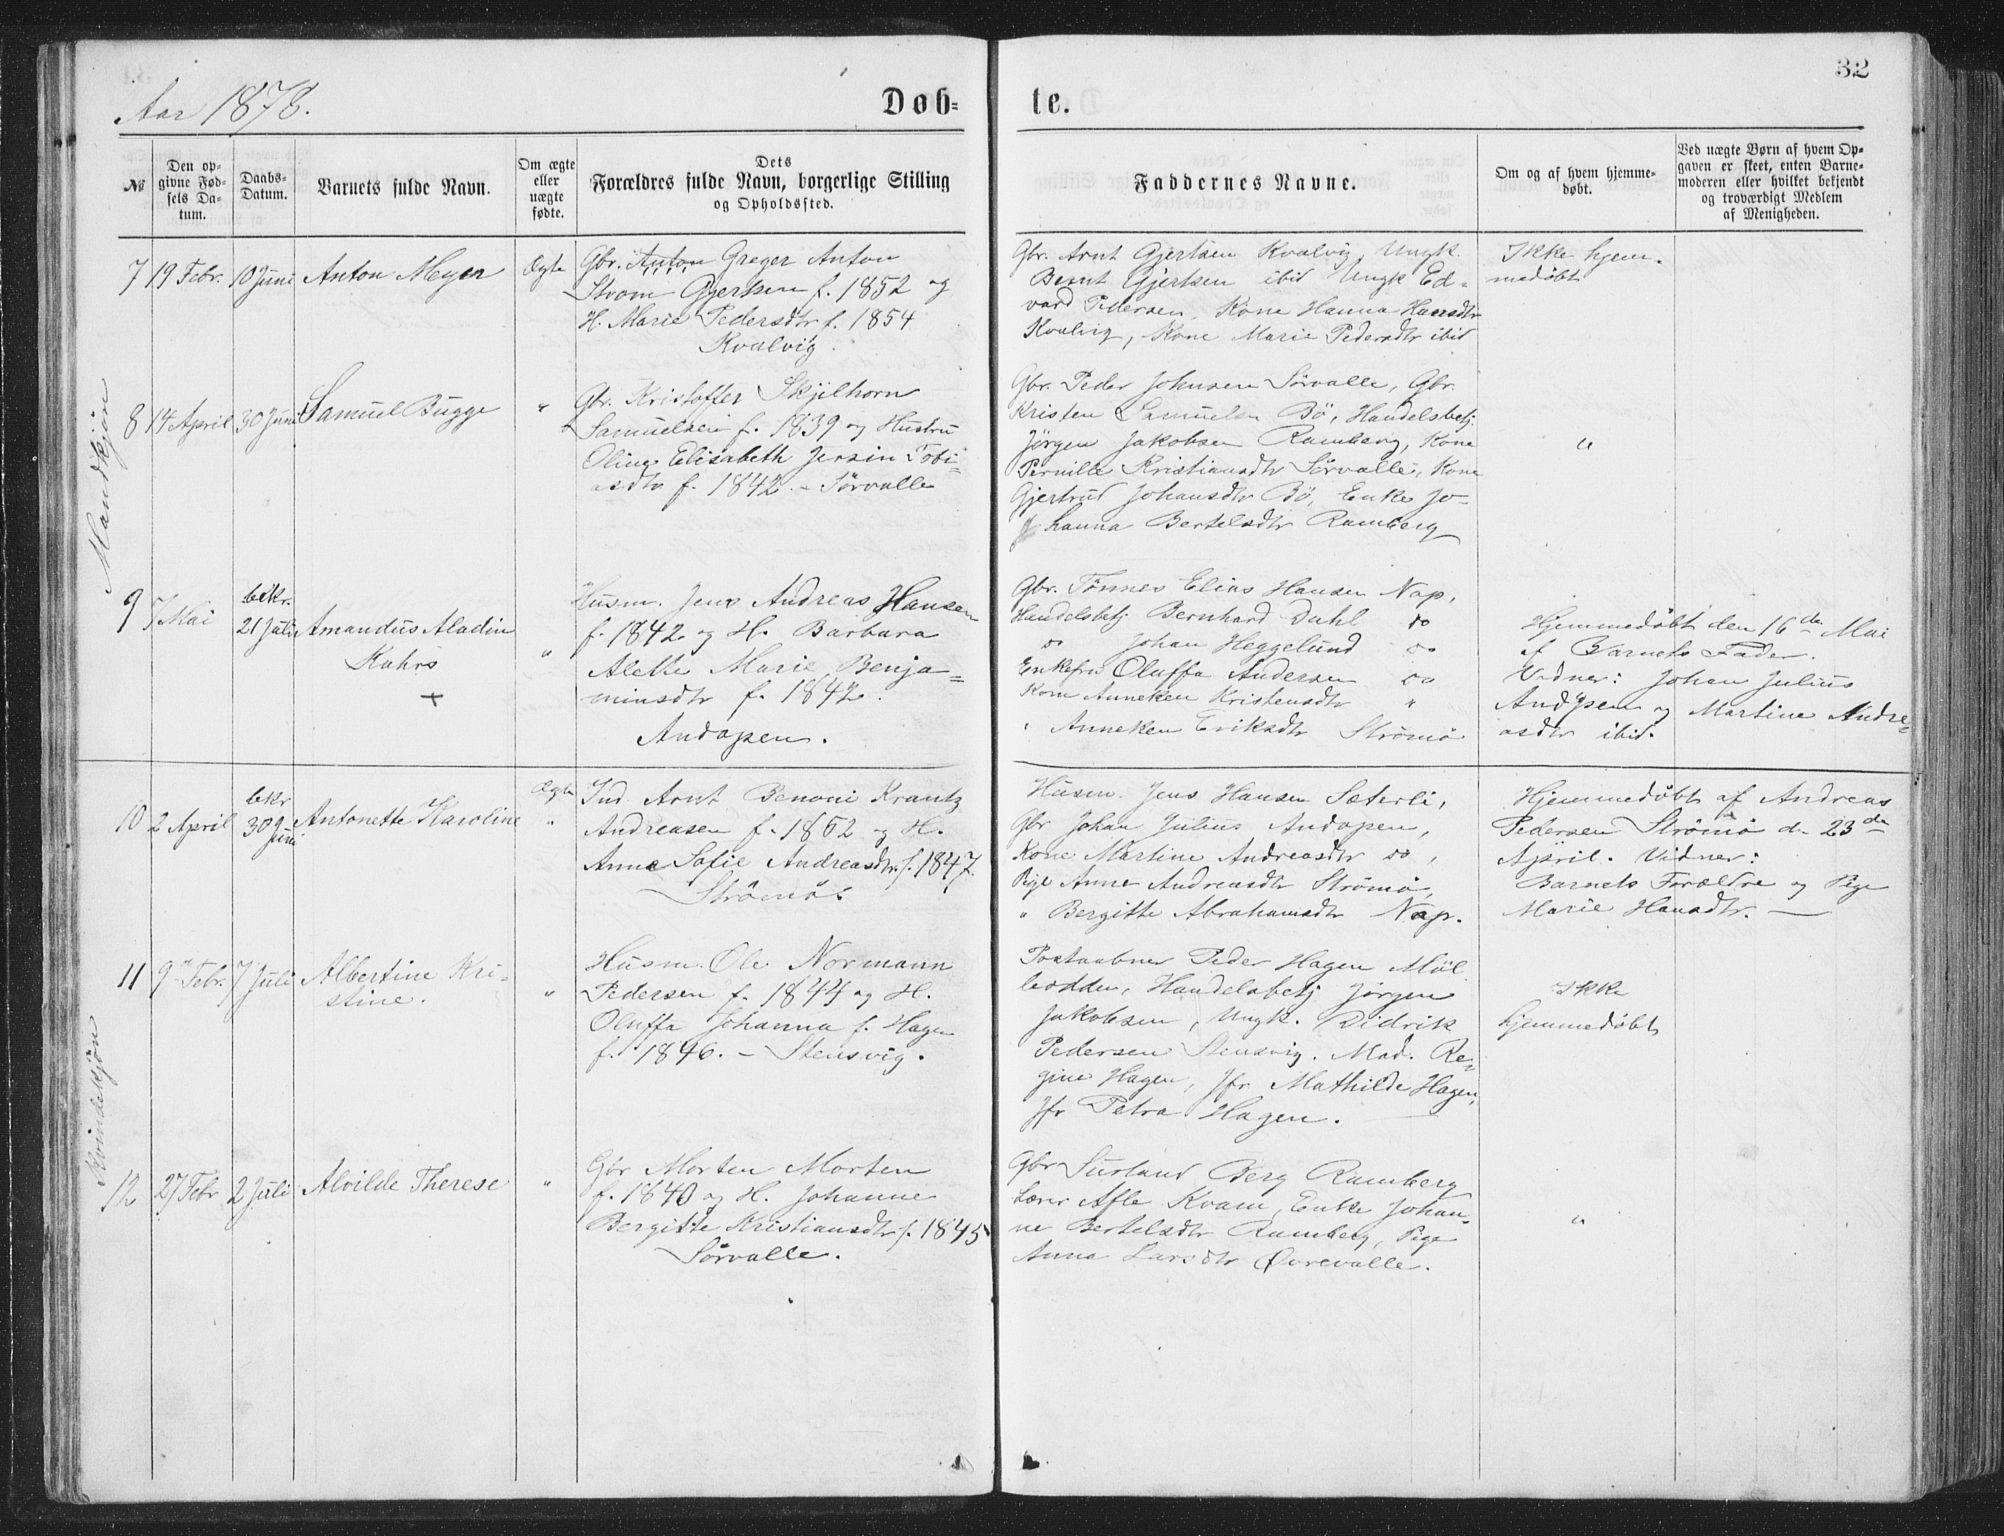 32
Aar 1878.
Døb-
te.
№
Den op-
givne Fød-
sels Da-
tum.
Daabs-
Datum.
Barnets fulde Navn.
Om ægte
eller
uægte
fødte.
Dets
Forældres fulde Navn, borgerlige Stilling
og Opholdssted.
Faddernes Navne.
Om og af hvem hjemme-
døbt.
Ved uægte Børn af hvem Op-
gaven er skeet, enten Barne-
moderen eller hvilket bekjendt
og troværdigt Medlem
af Menigheden.
Mandkjøn
7 19 Febr. 10 Juni Anton Meyer Ægte
Gbr. Anton Greger Anton
Strøm Gjertsen f. 1852 og
H. Marie Pedersdtr f. 1854
Kvalvig.
Gbr. Arnt Gjertsen Kvalvig, Ungk.
Bernt Gjertsen ibid Ungk Ed-
vard Pedersen, Kone Hanna Hansdtr
Kvalvig, Kone Marie Pedersdtr ibid
Ikke hjem-
medøbt
8 14 April 30 Juni Samuel Bugge "
Gbr. Kristoffer Skjelhorn
Samuelsen f. 1839 og Hustru
Oline Elisabeth Jersin Tobi-
asdtr f. 1842. - Sørvalle
Gbr. Peder Johnsen Sørvalle, Gbr.
Kristen Samuelsen Bø, Handelsbetj.
Jørgen Jakobsen Ramberg, Kone
Pernille Kristiansdtr Sørvalle, Kone
Gjertrud Johansdtr Bø, Enke Jo-
hanna Bertelsdtr Ramberg
"
9 7 Mai bekr. 21 Juli Amandus Aladin
Kahrs
+
"
Husm. Jens Andreas Hansen
f. 1842 og H. Barbara
Alette Marie Benja-
minsdtr f. 1842.
Andopen.
Gbr. Tønnes Elias Hansen Nap,
Handelsbetj Bernhard Dahl do
do Johan Heggelund do
Enkefru Oluffa Andersen do
Kone Anneken Kristensdtr "
" Anneken Eriksdtr Strømø
Hjemmedøbt den 16de Mai
af Barnets Fader.
Vidner: Johan Julius
Andopen og Martine Andre-
asdtr ibid.
Kvindekjøn
10 2 April bekr 30 Juni Antonette Karoline Ægte "
Ind Arnt Benoni Krantz
Andreasen f. 1852 og H.
Anna Sofie Andreasdtr. f. 1847.
Strømø.
Husm. Jens Hansen Sæterli,
Gbr Johan Julius Andopen,
Kone Martine Andreasdtr do,
Pige Anne Andreasdtr Strømø,
" Bergitte Abrahamsdtr Nap.
Hjemmedøbt af Andreas
Pedersen Strømø d. 23de
April. Vidner:
Barnets Forældre og Pige
Marie Hansdtr. —
11 9 Febr. 7 Juli Albertine Kri-
stine.
"
Husm. Ole Normann
Pedersen f. 1844 og H.
Oluffa Johanna f. Hagen
f. 1846. - Stensvig.
Postaabner Peder Hagen Møl
lodden, Handelsbetj Jørgen
Jakobsen, Ungk. Didrik
Pedersen Stensvig. Mad. Re-
gine Hagen, Jfr Mathilde Hagen,
Jfr Petra Hagen.
Ikke
hjemmedøbt
12 27 Febr 2 Juli Alvilde Therese "
Gbr Morten Morten
f. 1840 og H. Johanne
Bergitte Kristiansdtr f. 1845
Sørvalle.
Gbr Berg Ramberg
Lærer Kvam, Enke Johan-
ne Bertelsdtr Ramberg, Pige
Anna Larsdtr Øvrevalle.
"